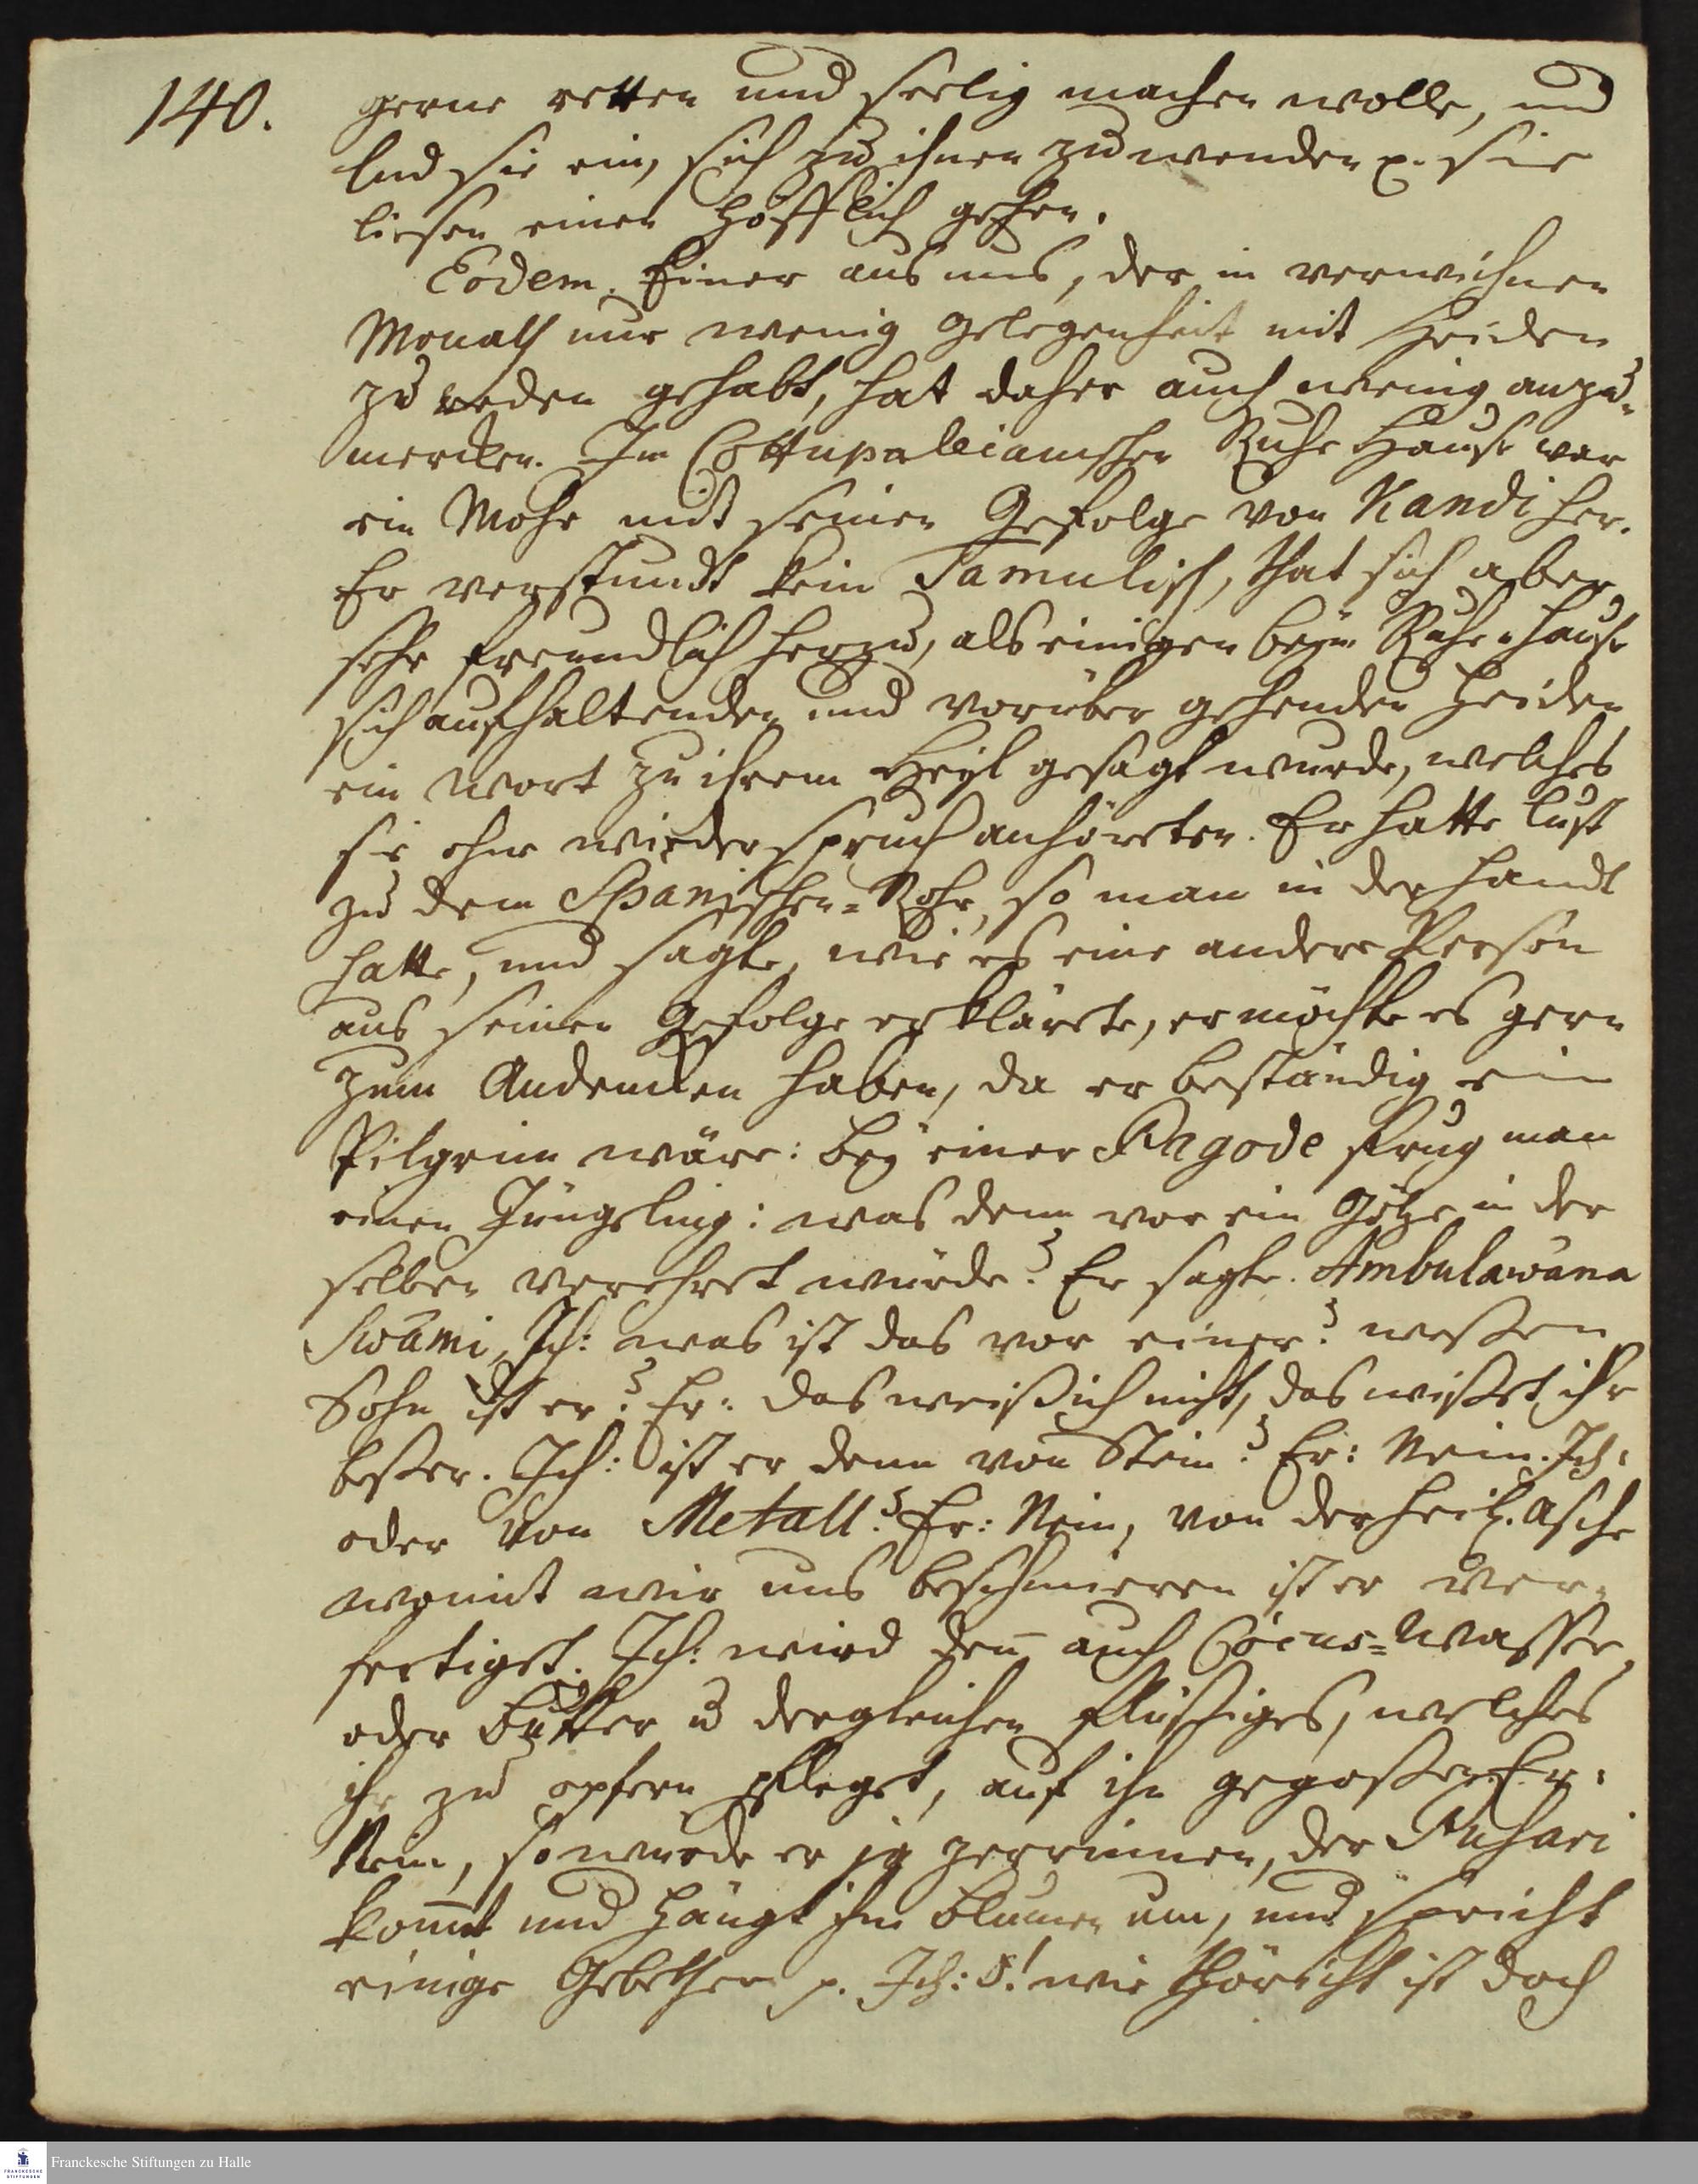 140.
gerne retten und seelig machen wolle, und
lud sie ein, sich zu ihnen zu wenden p. sie
liesen einen höfflich gehen.
Eodem. Einer aus uns, der in verwichnen
Monath nur wenig gelegenheit mit Heiden
zu reden gehabt, hat daher auch wenig anzu-
mercken. Im Cottupaleiamschen Ruhe Hause war
ein Mohr mit seinen Gefolge von Kandi her.
Er verstundt kein Tamulisch, that sich aber
sehr freundlich herzu, als einigen beym Ruhe-hause
sich aufhaltenden und vorüber gehenden Heiden
ein Wort zu ihrem Heyl gesagt wurde, welches
sie ohne wiederspruch anhöreten. Er hatte lust
zu dem Spanischen-Rohr, so man in der handt
hatte, und sagte, wie es eine andere Person
aus seinen Gefolge erklärete, er möchte es gern
zum Andencken haben, da er beständig ein
Pilgrim wäre: bey einer Pagode frug man
einen Jüngeling: was denn vor ein Götze in der
selben verehret würde? Er sagte. Ambulawána
Swámi, Ich: was ist das vor einer? weßen
Sohn ist er? Er: das weiß ich nicht, das wißet ihr
beßer. Ich: ist er denn von Stein? Er: Nein. Ich:
oder von Metall? Er: Nein, von der heil. Asche
womit wir uns beschmieren ist er ver-
fertiget. Ich: wird den̄ auch Cocus=Wasser,
oder butter u dergleichen flüßiges, welches
ihr zu opfern pfleget, auf ihn gegoßen. Er:
Nein, so würde er ja zerrinnen, der Puhari
kom̄t und hängt ihm blumen um, und spricht
einige Gebether p. Ich: O! wie thöricht ist doch
Franckesche Stiftungen zu Halle
FRANCKESCHE STIFTUNGEN